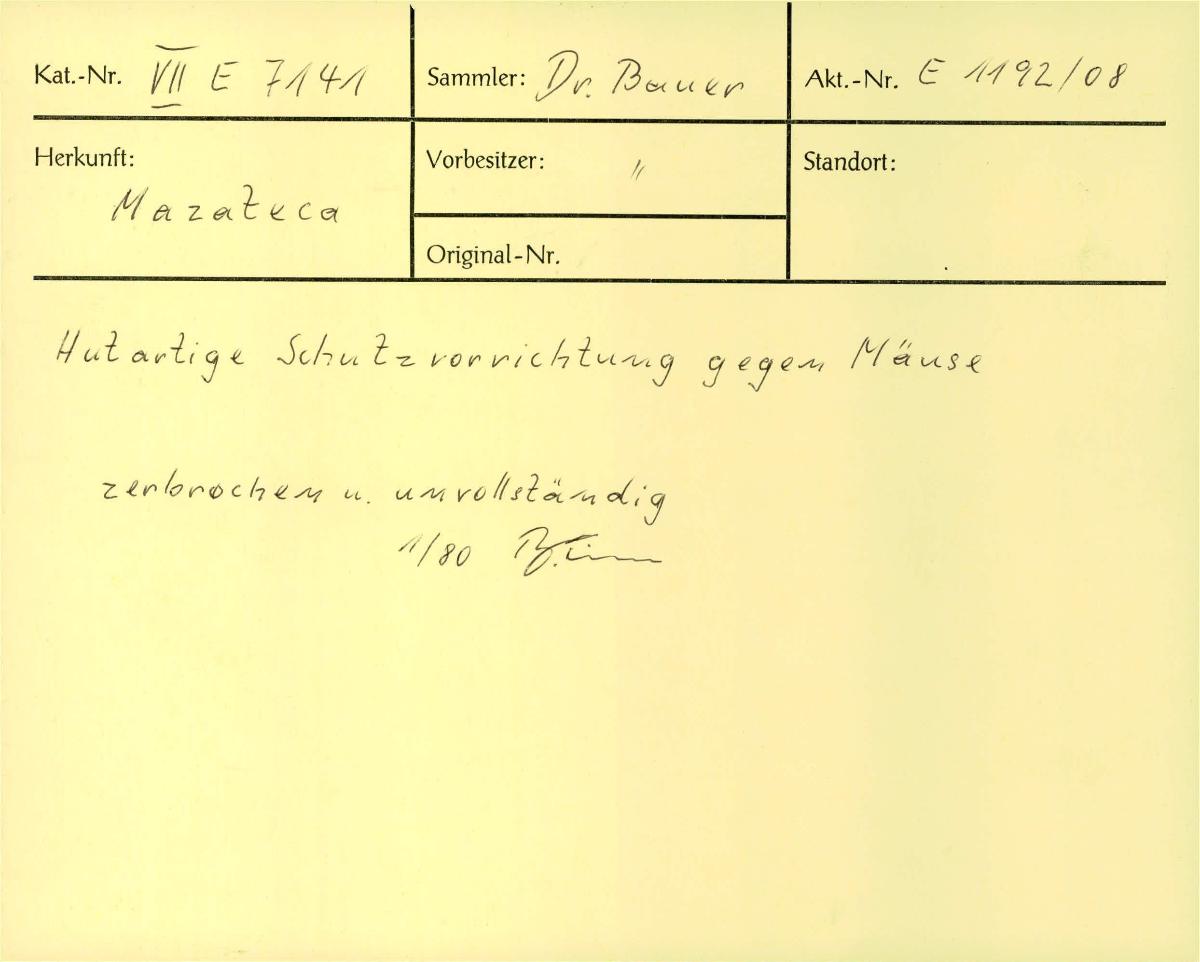 Kat.-Nr. VII E 7141
Sammler: Dr. Bauer
Akt.-Nr. E 1192/08
Herkunft:
Mazateca
Vorbesitzer: "
Original-Nr.
Standort:
Hutartige Schutzvorrichtung gegen Mäuse
zerbrochen u. unvollständig
1/80